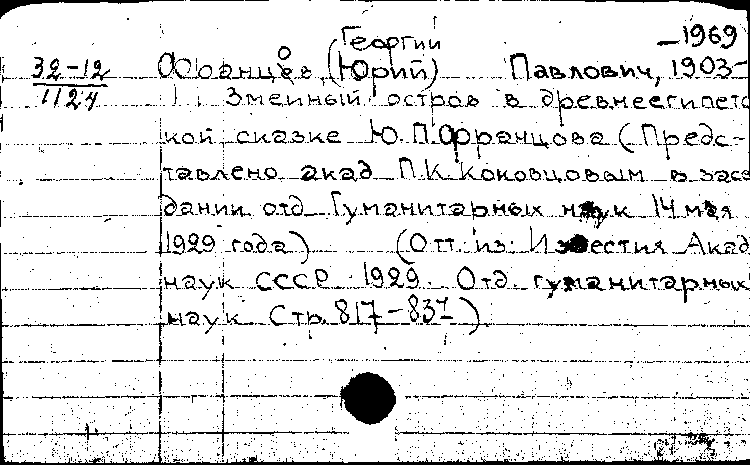 Георгий —1969
32-12 Францов, (Юрий) Павлович, 1903-
1124 Змеиный остров в древнеегипетс
кой сказке Ю.П.Францова (Предс-
тавлено акад П.К.Коковцовым в засе
дании отд Гуманитарных наук 14 мая
1929 года) (Отт. из: Известия Акад
наук СССР 1929. Отд. гуманитарных
наук Стр. 817-837)